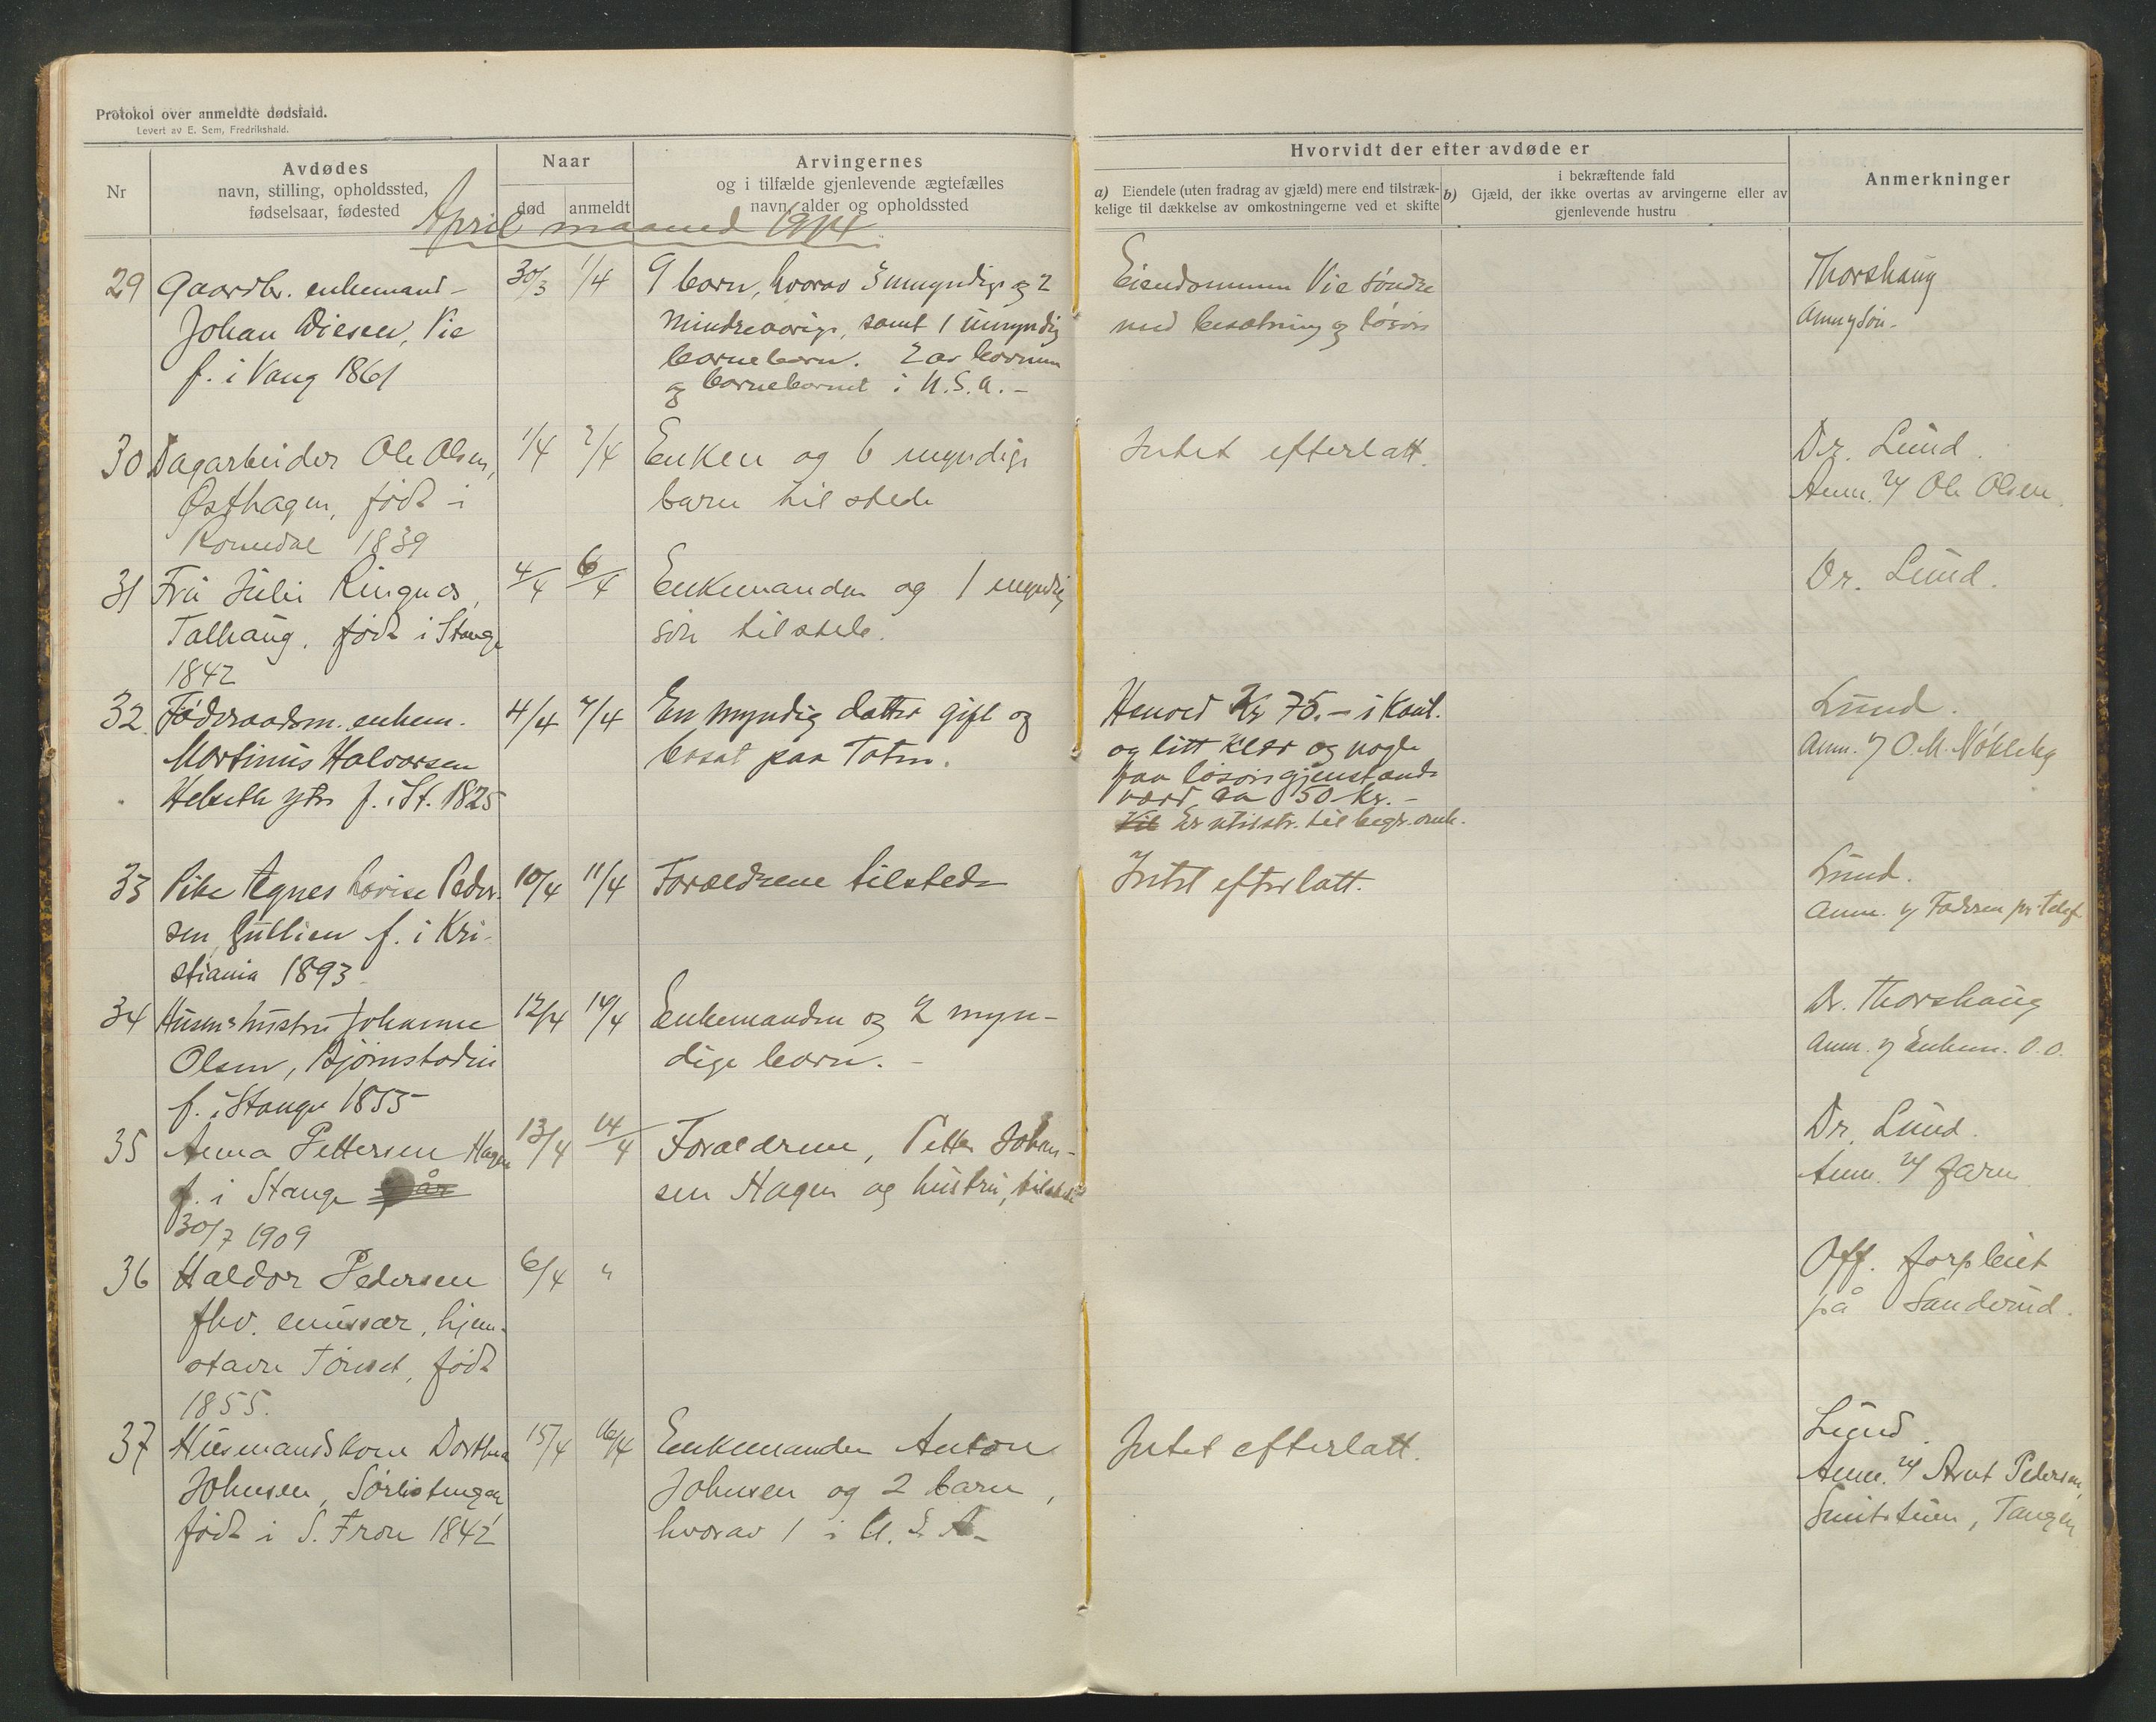 Protokol over anmeldte dødsfald.
Levert av E. Sem, Fredrikshald.
Nr
Avdødes
navn, stilling, opholdssted,
fødselsaar, fødested
Naar
død
anmeldt
Arvingernes
og i tilfælde gjenlevende ægtefælles
navn, alder og opholdssted
Hvorvidt der efter avdøde er
a) Eiendele (uten fradrag av gjæld) mere end tilstræk-
kelige til dækkelse av omkostningerne ved et skifte
i bekræftende fald
b) Gjæld, der ikke overtas av arvingerne eller av
gjenlevende hustru
Anmerkninger
April maaned 1914
29 Gaardbr. enkemand
Johan Diesen, Vie
f. i Vang 1861
30/3 1/4
9 barn, hvorav 3 umyndige og 2
mindreaarige, samt 1 umyndig
barnebarn. 2 av barnene
og barnebarnet i U.S.A. -
Eiendommen Vie søndre
med besætning og løsøre
Thorshaug
Anm. y Søn.
30 Dagarbeider Ole Olsen,
Østhagen, født i
Romedal 1839
1/4 2/4
Enken og 6 myndige
barn til stede
Intet efterlatt.
Dr. Lund.
Anm. v/ Ole Olsen.
31 Fru Julie Ringnes,
Talhaug, født i Stange
1842
4/4 6/4
Enkemanden og 1 myndig
søn tilstede.
Dr. Lund.
32. Føderaadsm. enkem.
Martinus Halvorsen
Helseth ytre f. i St. 1825
4/4 7/4
En myndig datter gift og
bosat paa Toten.
Henved Kr 75.- i Kont.
og litt klær og nogle
faa løsøregjenstande
værd ca 50 kr. -
Vil Er utilstr. til begr. omk.
Lund.
Anm. y O. M. Nökleby
33 Pike Agnes Lovise Peder-
sen, Gullien f. i Kri-
stiania 1893.
10/4 11/4
Forældrene tilstede
Intet efterlatt.
Lund.
Anm. y Faderen pr. telef.
34 Husm.hustru Johanne
Olsen, Bjørnstadie
f. i Stange 1855
12/4 14/4
Enkemanden og 2 myn-
dige barn. -
Dr. Thorshaug
Anm. y Enkem. O.O.
35 Anna Pettersen Hagen
f. i Stange år
30/7 1909
13/4 14/4
Forældrene, Petter Johan-
sen Hagen og hustru, tilstede
Dr. Lund.
Anm. v/ faren
36 Haldor Pedersen
fhv. emissær, hjem-
stavn Tönset, født
1855.
6/4 "
Off. forpleiet
på Sanderud.
37 Husmandskone Dorthea
Johnsen, Sørlistengen
født i S. Fron 1842
15/4 16/4
Enkemanden Anton
Johnsen og 2 barn,
hvorav 1 i U.S.A.
Intet efterlatt.
Lund.
Anm. v/ Arnt Pedersen,
Smitstuen, Tangen